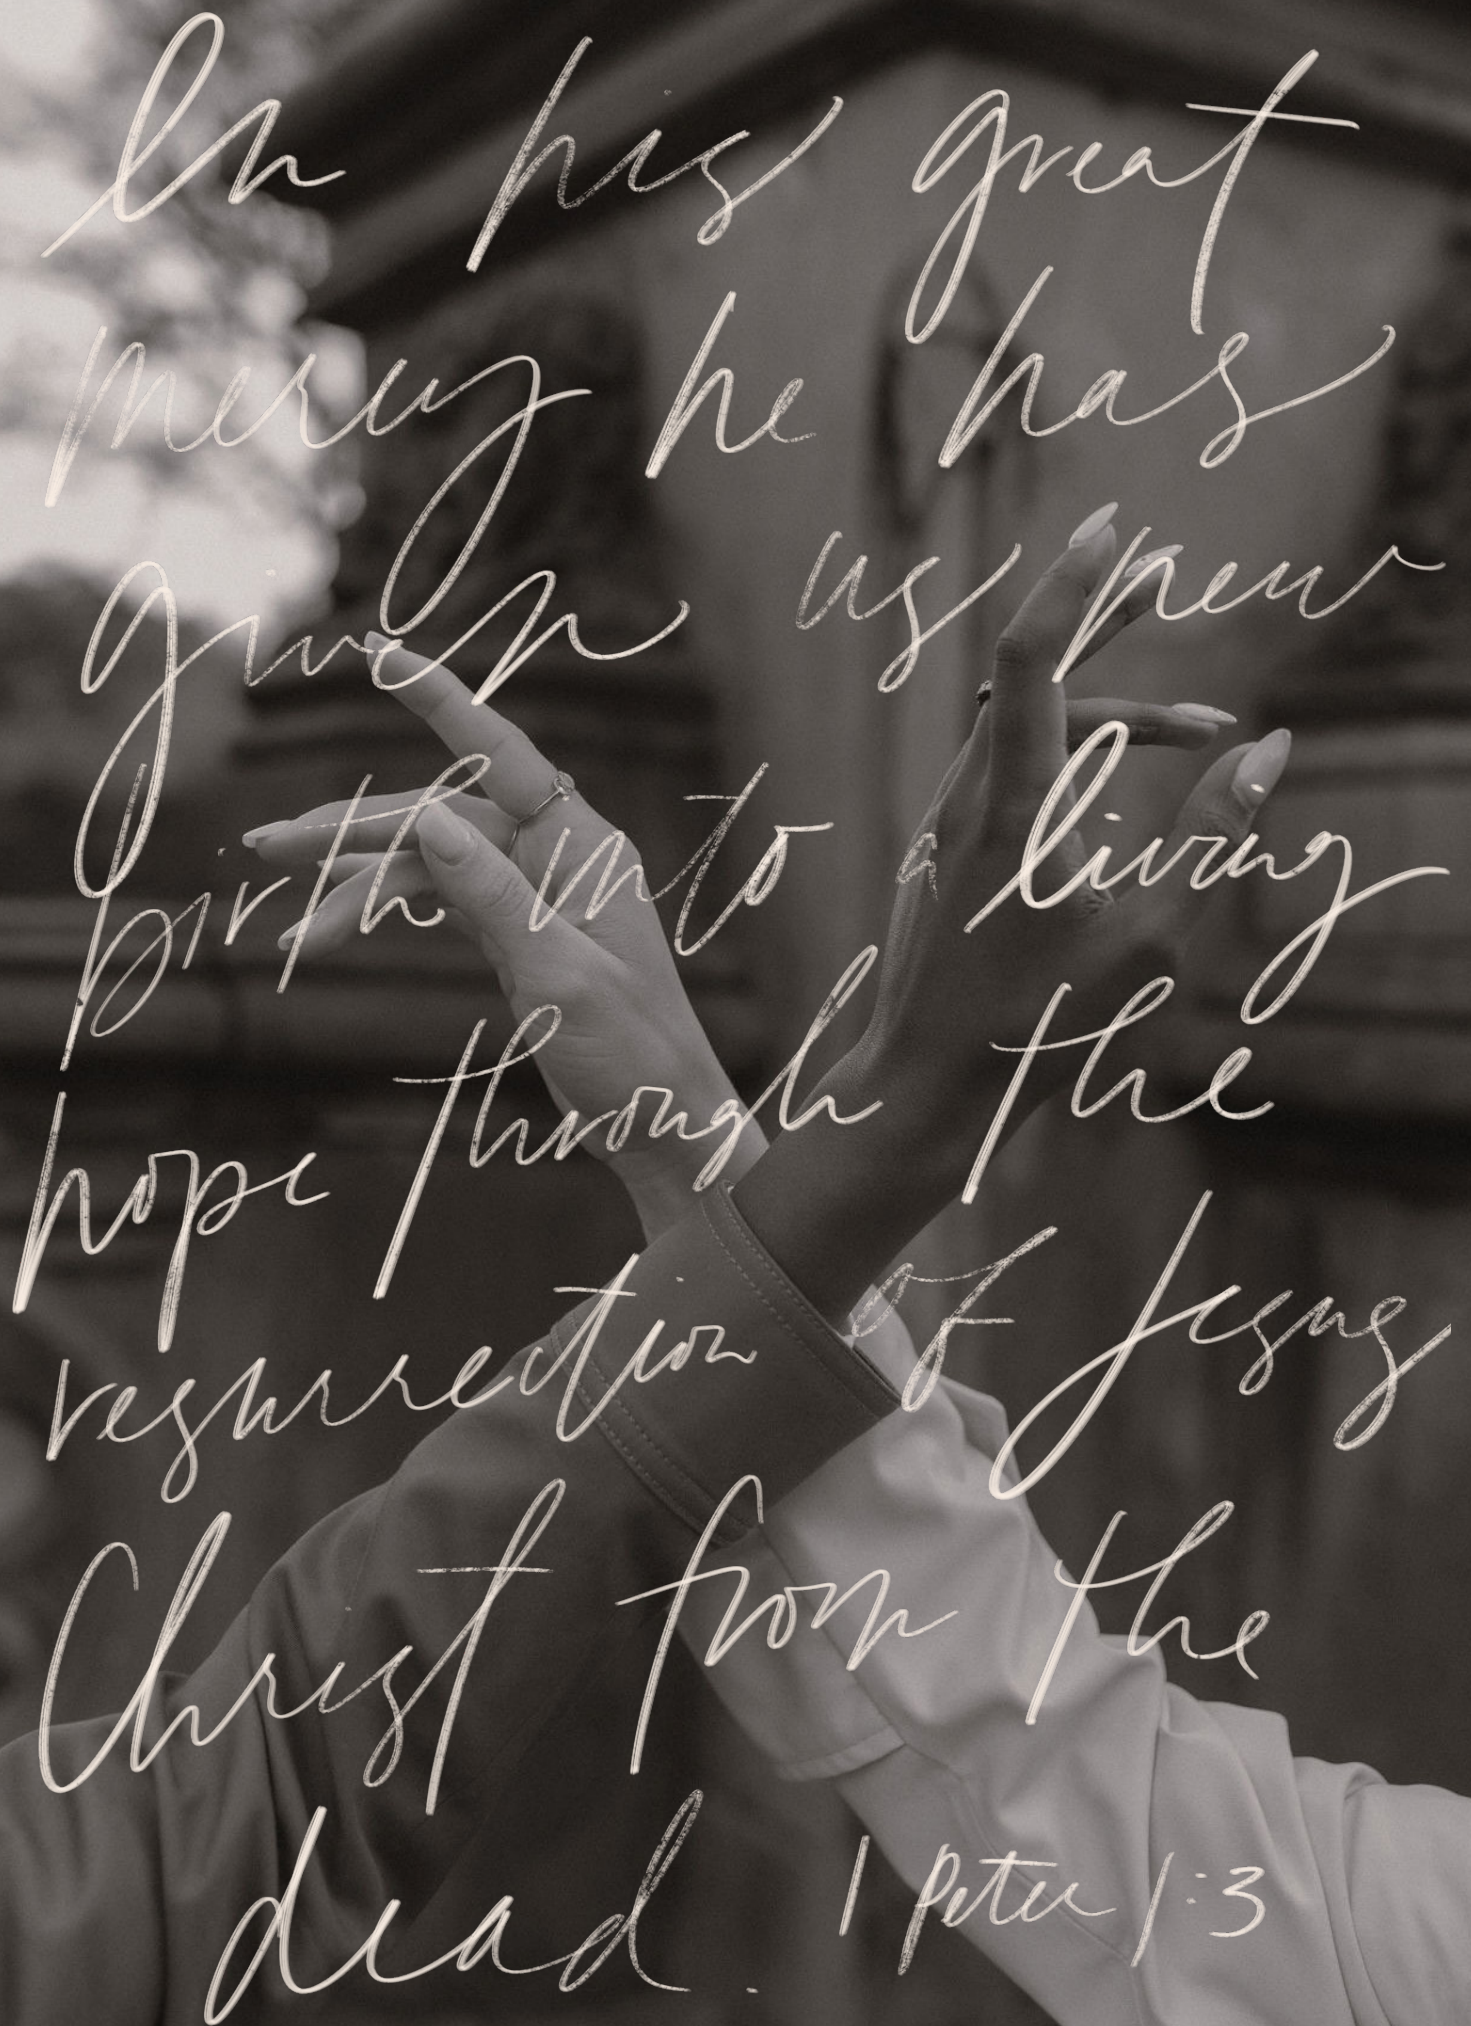 In his great
mercy he has
given us new
birth into a living
hope through the
resurrection of Jesus
Christ from the
dead. 1 Peter 1:3